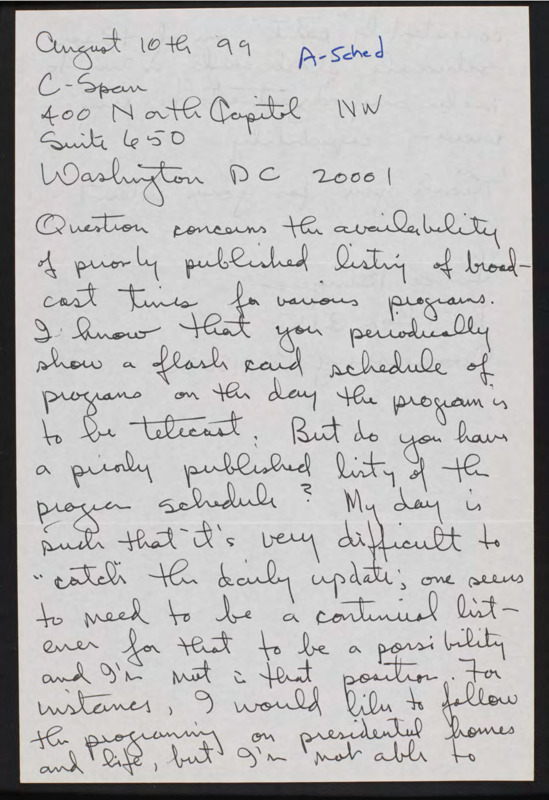 August 10th 99
A-Sched
C-Span
400 North Capitol NW
Suite 650
Washington DC 20001
Question concerns the availability
of priorly published listing of broad-
cast times for various programs.
I know that you periodically
show a flash card schedule of
programs on the day the program is
to be telecast. But do you have
a priorly published listg of the
program schedule? My day is
such that it's very difficult to
"catch" the daily update; one seems
to need to be a continual list-
ener for that to be a possibility
and I'm not in that position. For
instance, I would like to follow
the programing on presidential homes
and life, but I'm not able to